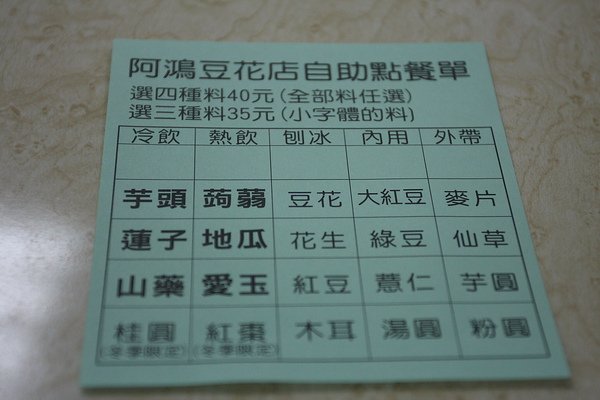 阿鴻豆花店自助點餐單
選四種料40元(全部料任選)
選三種料35元(小字體的料)
冷飲 熱飲 刨冰 內用 外帶
芋頭 蒟蒻 豆花 大紅豆 麥片
蓮子 地瓜 花生 綠豆 仙草
山藥 愛玉 紅豆 薏仁 芋圓
桂圓 紅棗 木耳 湯圓 粉圓
(冬季限定) (冬季限定)